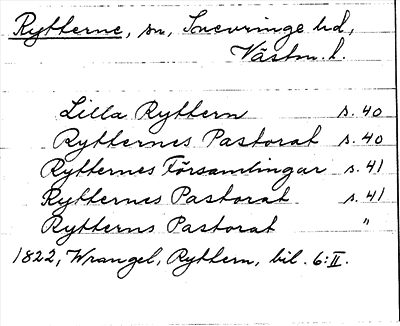 Rytterne, sn, Snevringe hd,
Västm. l.
Lilla Ryttern s. 40
Rytternes Pastorat s. 40
Rytternes Församlingar s. 41
Rytternes Pastorat s. 41
Rytterns Pastorat "
1822, Wrangel, Ryttern, bil. 6:II.